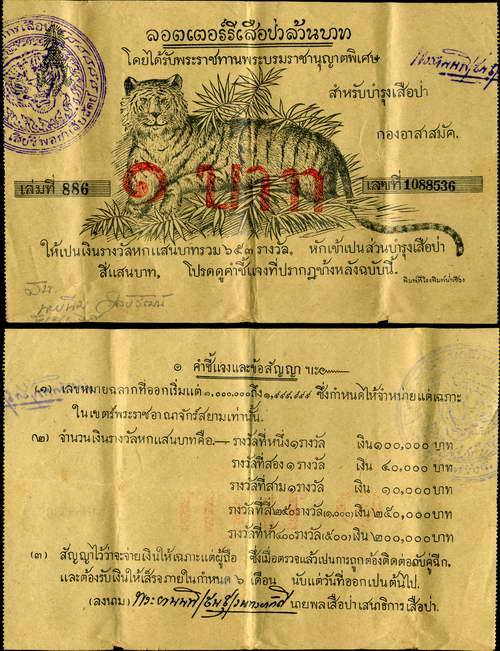 ลอตเตอร์รีเสือป่าล้านบาท
โดยได้รับพระราชทานพระบรมราชานุญาตพิเศษ
สำหรับบำรุงเสือป่า
กองอาสาสมัค.
๑ บาท
เล่มที่ 886
เลขที่ 1088536
ให้เปนเงินรางวัลหกแสนบาทรวม ๖๕๓ รางวัล, หักเข้าเปนส่วนบำรุงเสือป่า
สี่แสนบาท, โปรดดูคำชี้แจงที่ปรากฏข้างหลังฉบับนี้.
คำชี้แจงและข้อสัญญา
(๑) เลขหมายฉลากที่ออกเริ่มแต่ ๑,๐๐๐,๐๐๐ ถึง ๑,๙๙๙,๙๙๙ ซึ่งกำหนดให้จำหน่ายแต่เฉภาะ
ในเขตร์พระราชอาณาจักร์สยามเท่านั้น.
(๒) จำนวนเงินรางวัลหกแสนบาทคือ.— รางวัลที่หนึ่ง ๑ รางวัล เงิน ๑๐๐,๐๐๐ บาท
รางวัลที่สอง ๑ รางวัล เงิน ๔๐,๐๐๐ บาท
รางวัลที่สาม ๑ รางวัล เงิน ๑๐,๐๐๐ บาท
รางวัลที่สี่ ๒๕๐ รางวัล (๑,๐๐๐) เงิน ๒๕๐,๐๐๐ บาท
รางวัลที่ห้า ๔๐๐ รางวัล (๕๐๐) เงิน ๒๐๐,๐๐๐ บาท
(๓) สัญญาไว้ว่าจะจ่ายเงินให้เฉภาะแต่ผู้ถือ ซึ่งเมื่อตรวจแล้วเปนการถูกต้องติดต่อกับคู่ฉีก,
และต้องรับเงินให้เสร็จภายในกำหนด ๖ เดือน นับแต่วันที่ออกเปนต้นไป.
(ลงนาม) นายพลเสือป่าเสนาธิการเสือป่า.